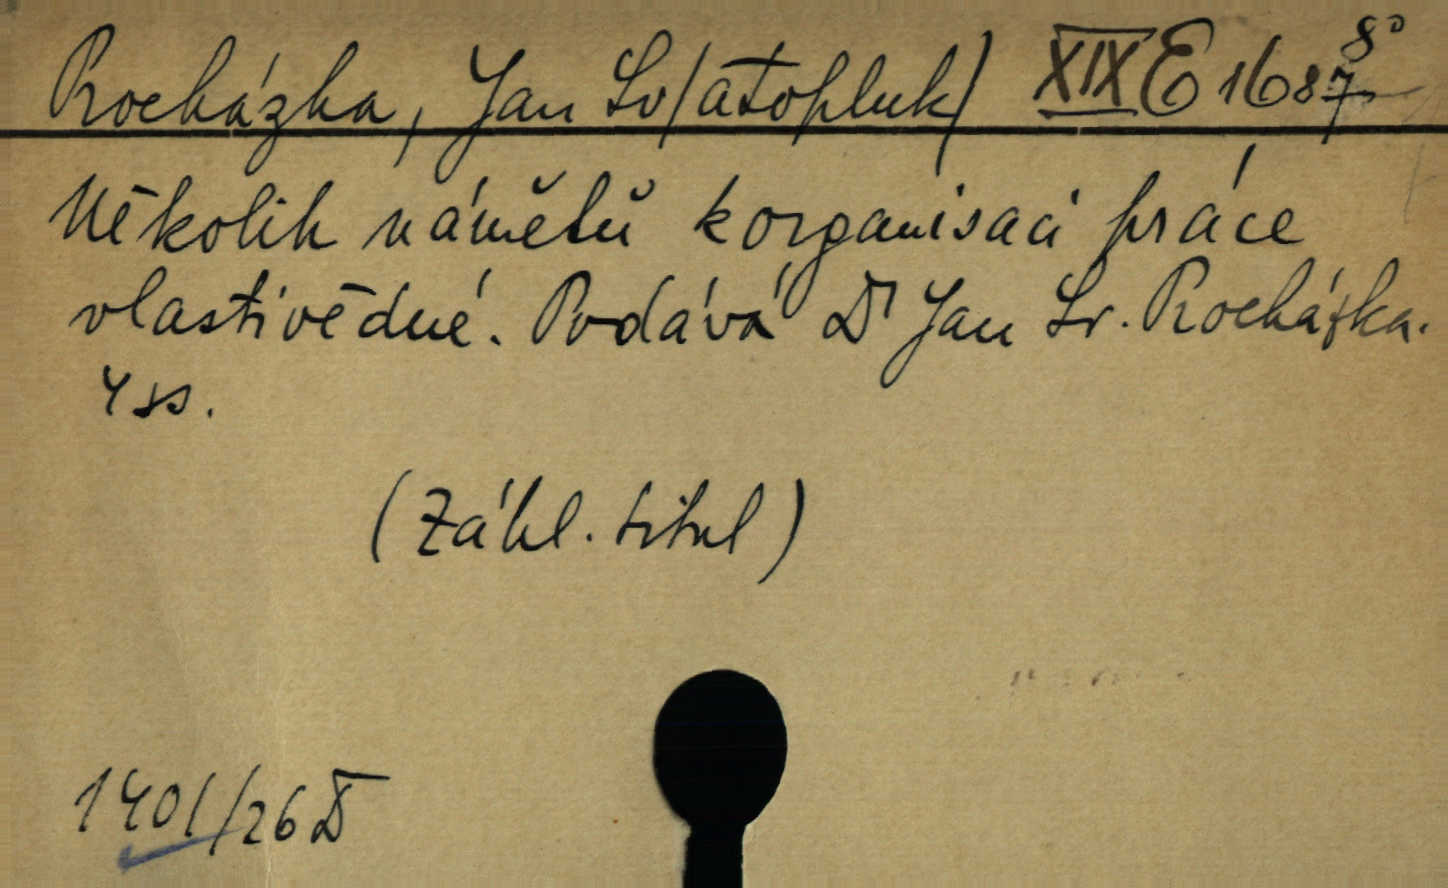 Procházka, Jan Sv/atopluk/ XIX E 1687 8°
Několik námětů k organisaci práce
vlastivědné. Podává Dr Jan Sv. Procházka.
4 ss.
(Záhl. titul)
1401/26 D